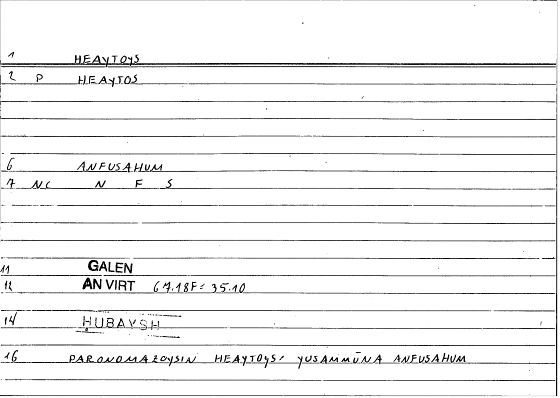 1 HEAYTOYS
2 P HEAYTOS
6 ANFUSAHUM
7 NC N F S
11 GALEN
12 AN VIRT 67.18F = 35.10
14 HUBAYSH
16 PARONOMAZOYSIN HEAYTOYS: YUSAMMŪNA ANFUSAHUM